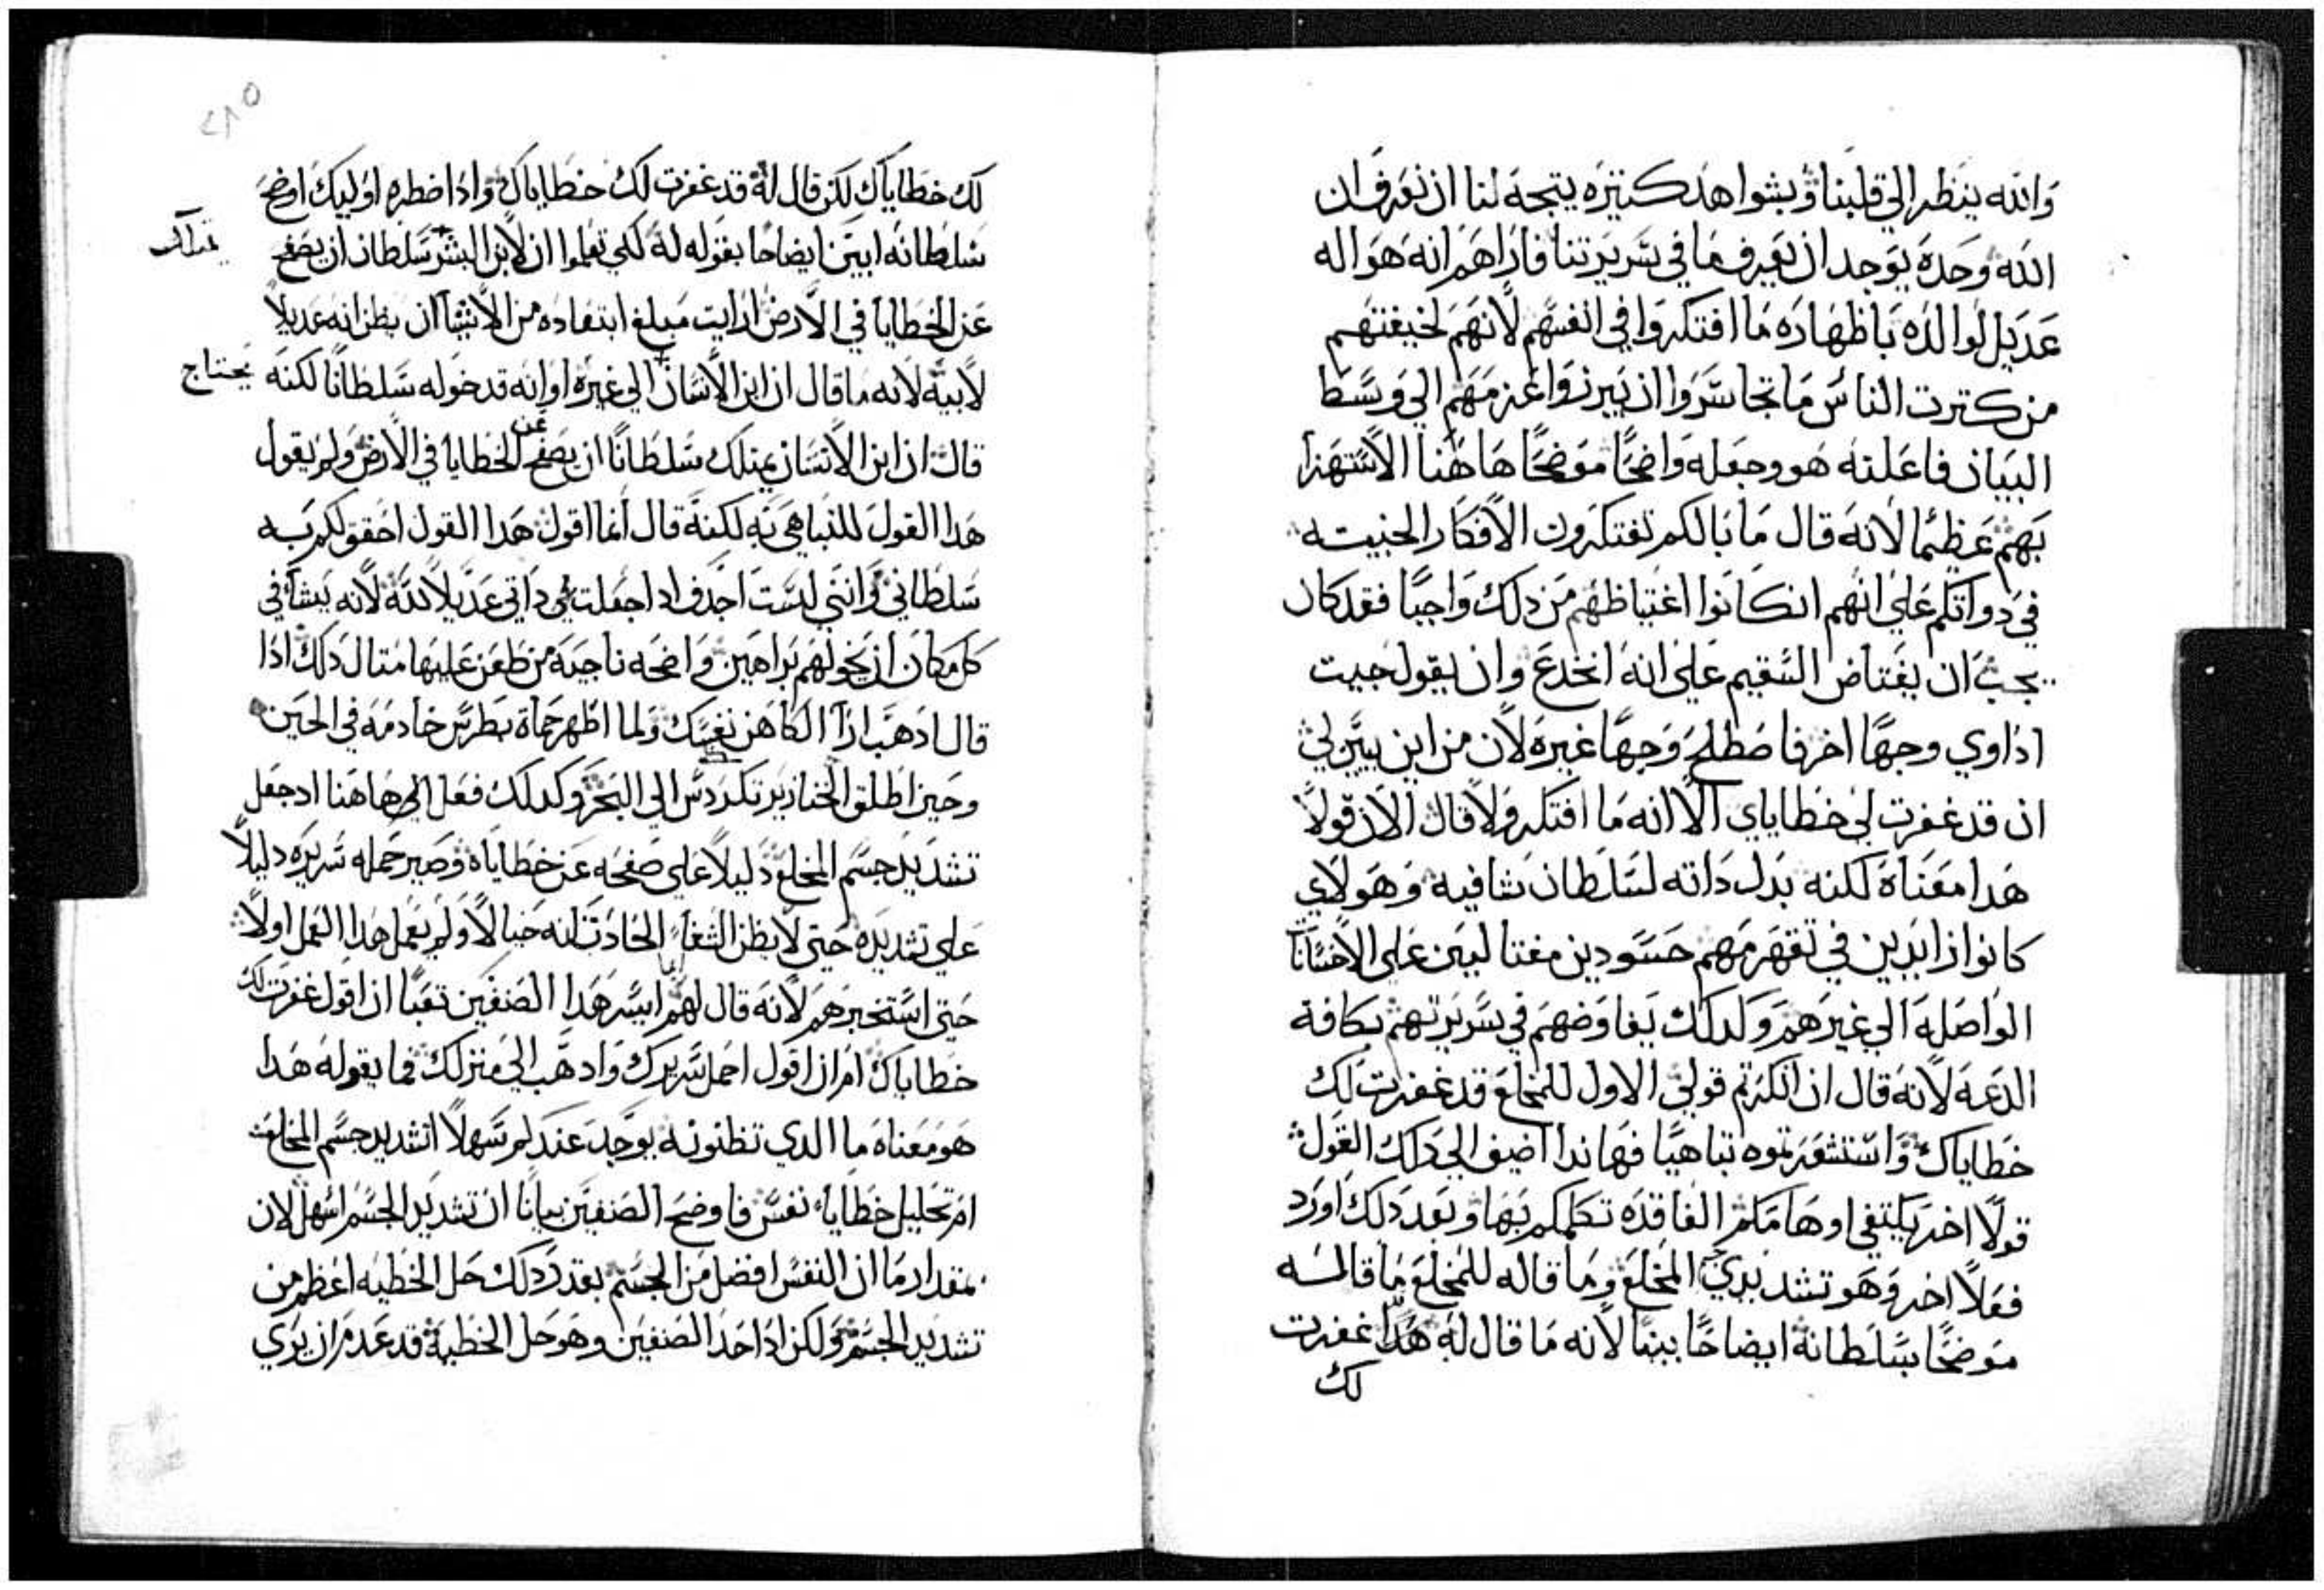 والله ينظر الي قلبنا وبشواهد كتيره يتجه لنا ان نعرف ان
الله وحده يوجد ان يعرف ما في سريرتنا فاراهم انه هو اله
عديل لوالده باظهاره ما افتكروا في انفسهم لانهم لخيفتهم
من كترت الناس ما تجاسروا ان يبرزوا عزمهم الي وسط
البيان فاعلنه هو وجعله واضحًا موضحًا هاهنا الاستهزا
بهم عظيمًا لانه قال ما بالكم تفتكرون الافكار الخبيته
في دواتكم علي انهم ان كانوا اغتياظهم من دلك واجبًا فقد كان
يجب ان يغتاض السقيم علي انه انخدع وان يقول جيت
اداوي وجهًا اخر فاصطلح وجهًا غيره لان من اين يبين لي
ان قد غفرت لي خطاياي الا انه ما افتكر ولا قال الان قولًا
هدا معناه لكنه بدل داته لسلطان شافيه وهولاي
كانوا زايدين في تقهرمهم حسودين مغتالين علي الاحسانات
الواصله الي غيرهم ولدلك يفاوضهم في سريرتهم بكافة
الدعه لانه قال ان انكرتم قولي الاول للمخلع قد غفرت لك
خطاياك واستشعرتموه تباهيًا فهاندا اضيف الي دلك القول
قولًا اخر يكتفي اوهامكم الفاقده تكلمكم بها وبعد دلك اورد
فعلًا اخر وهو تشديدي المخلع وما قاله للمخلع ما قاله
موضحًا بسلطانه ايضاحًا بينًا لانه ما قال له هدا غفرت
لك
٢٨٥
لك خطاياك لكن قال له قد غفرت لك خطاياك وادا اضطره اوليك اوضح
سلطانه ابين ايضاحًا بقوله له لكي تعلموا ان لابن البشر سلطان ان يصفح
عن الخطايا في الارض ارايت مبلغ ابتعاده من الا يشا ان يظن انه عديلًا
لابيه لانه ما قال ان ابن الانسان الي غيره او انه قد خوله سلطانًا لكنه
يحتاج
قال ان ابن الانسان يمتلك سلطانًا ان يصفح عن الخطايا في الارض ولم يقول
هدا القول للتباهي به لكنه قال انما اقول هدا القول احقق لكم به
سلطاني وانني لست اجدف ادا جعلت داتي عديلًا لله لانه يشا في
كل مكان ان يخولهم براهين واضحه ناجيه من طعن عليها متال دلك ادا
قال ادهب ارا الكاهن نفسك ولما اظهر حماة بطرس خادمه في الحين
وحين اطلق الخنازير تكردس الي البحر وكدلك فعل الي هاهنا اد جعل
تشديد جسم المخلع دليلًا علي صفحه عن خطاياه وصير حمله سريره دليلًا
علي تشديده حتي لا يظن الشفا الحادت انه خيالًا ولم يعمل هدا العمل اولًا
حتي استخبرهم لانه قال لهم ايما ايسر هدا الصنفين تعبًا ان اقول غفرت لك
خطاياك ام ان اقول احمل سريرك وادهب الي منزلك فما يقوله هدا
هو معناه ما الدي تظنونه يوجد عندكم سهلًا اتشديد جسم المخلع
ام تحليل خطايا نفس فاوضح الصنفين بيانًا ان تشديد الجسم اسهل لان
بمقدار ما ان النفس افضل من الجسم بقدر دلك حل الخطيه اعظم من
تشديد الجسم ولكن اد احد الصنفين وهو حل الخطية قد عدم ان يري